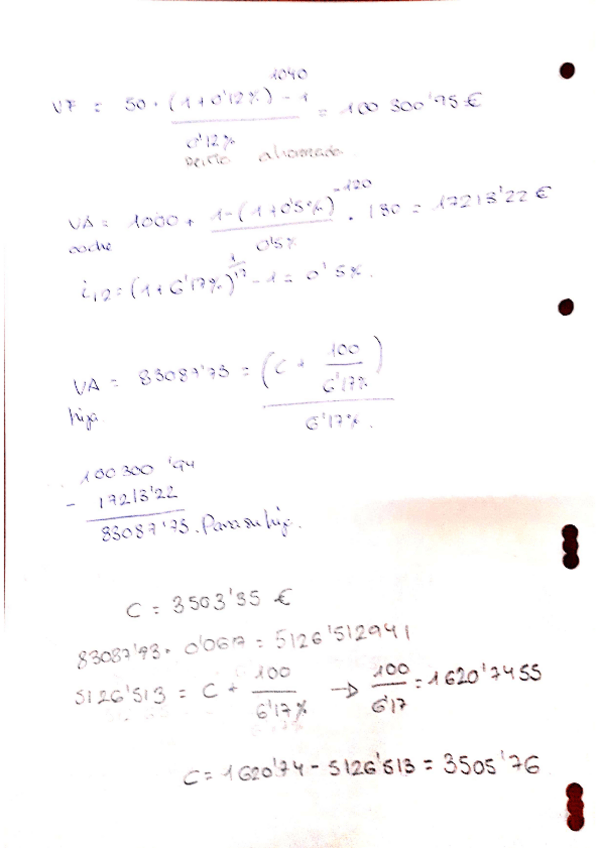 1040
VF = 50 · (1+0'12%) - 1 = 100 300'95 €
0'12%
ahorrado
-120
VA = 1000 + 1-(1+0'5%) · 180 = 17213'22 €
coche 0'5%
1/12
i12 = (1+6'17%) - 1 = 0'5%.
VA = 83087'73 = (C + 100/6'17%)
hija 6'17%.
100 300'94
- 17213'22
83087'73. Para su hija.
C = 3503'35 €
83087'73 · 0'0617 = 5126'512941
5126'513 = C + 100/6'17% → 100/6'17 = 1620'7455
C = 1620'74 - 5126'513 = 3505'76